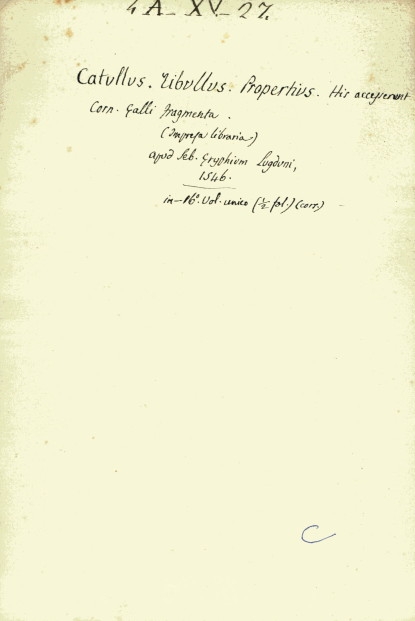 4 A - XV - 27.
Catullus. Tibullus. Propertius. His accesserunt
Corn. Galli fragmenta.
(Impresa libraria)
apud Seb. Gryphium Lugduni,
1546.
in-16°. Vol. unico (½ fol.) (corr.)
C